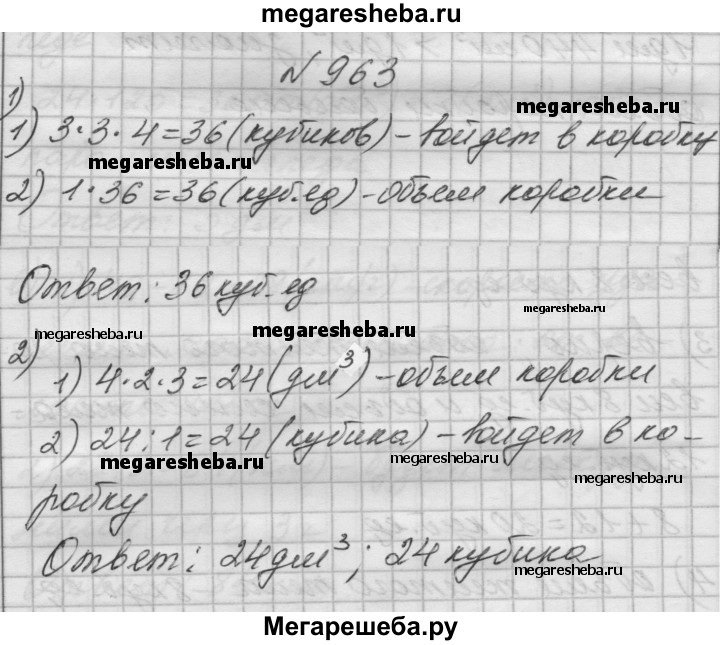 megaresheba.ru
№963
1)
megaresheba.ru
1) 3·3·4=36(кубиков)-войдет в коробку
megaresheba.ru
2) 1·36=36(куб.ед)-объем коробки
Ответ: 36 куб.ед
megaresheba.ru
megaresheba.ru
megaresheba.ru
2)
1) 4·2·3=24(дм³)-объем коробки
2) 24:1=24 (кубика)-войдет в ко-
megaresheba.ru
megaresheba.ru
megaresheba.ru
робку
Ответ: 24дм³; 24 кубика
megaresheba.ru
Мегарешеба.ру